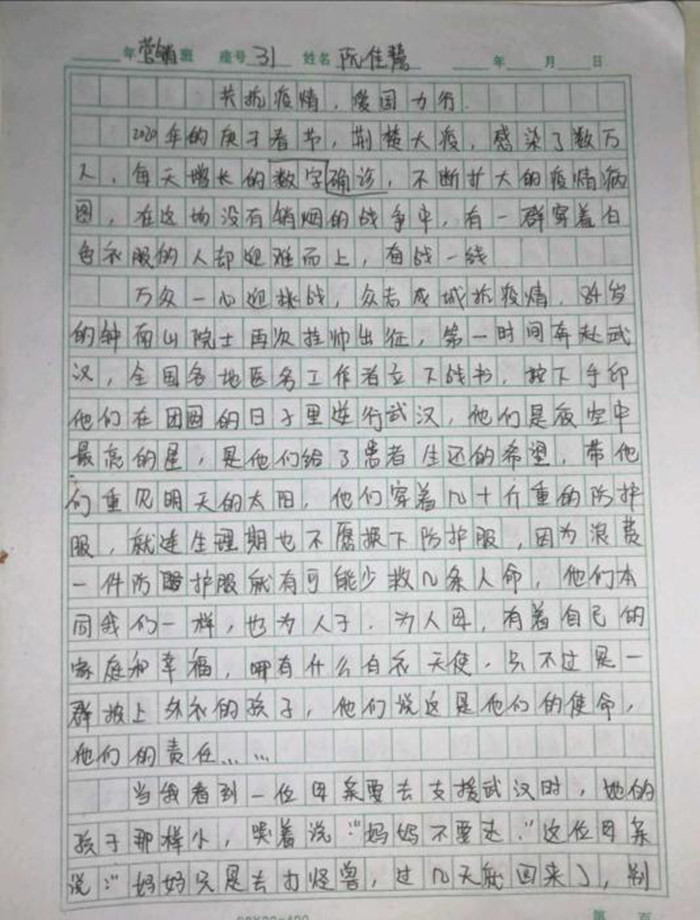 年 营销 班 座号 31 姓名 阮佳 年 月 日
共抗疫情，爱国力行.
2020年的庚子春节，荆楚大疫，感染了数万
人，每天增长的数字确诊，不断扩大的疫情病
图，在这场没有销烟的战争中，有一群穿着白
色衣服的人却迎难而上，奋战一线
万众一心迎挑战，众志成城抗疫情，84岁
的钟南山院士再次挂帅出征，第一时间奔赴武
汉，全国各地医务工作者立下战书，按下手印
他们在团圆的日子里逆行武汉，他们是夜空中
最亮的星，是他们给了患者生还的希望，带他
们重见明天的太阳，他们穿着几十斤重的防护
服，就连生理期也不愿换下防护服，因为浪费
一件防护服就有可能少救几条人命，他们本
同我们一样，也为人子.为人母，有着自己的
家庭和幸福，哪有什么白衣天使.只不过是一
群披上外衣的孩子，他们说这是他们的使命，
他们的责任……
当我看到一位母亲要去支援武汉时，她的
孩子那样小，哭着说："妈妈不要走."这位母亲
说："妈妈只是去打怪兽，过几天就回来了，别
第 页